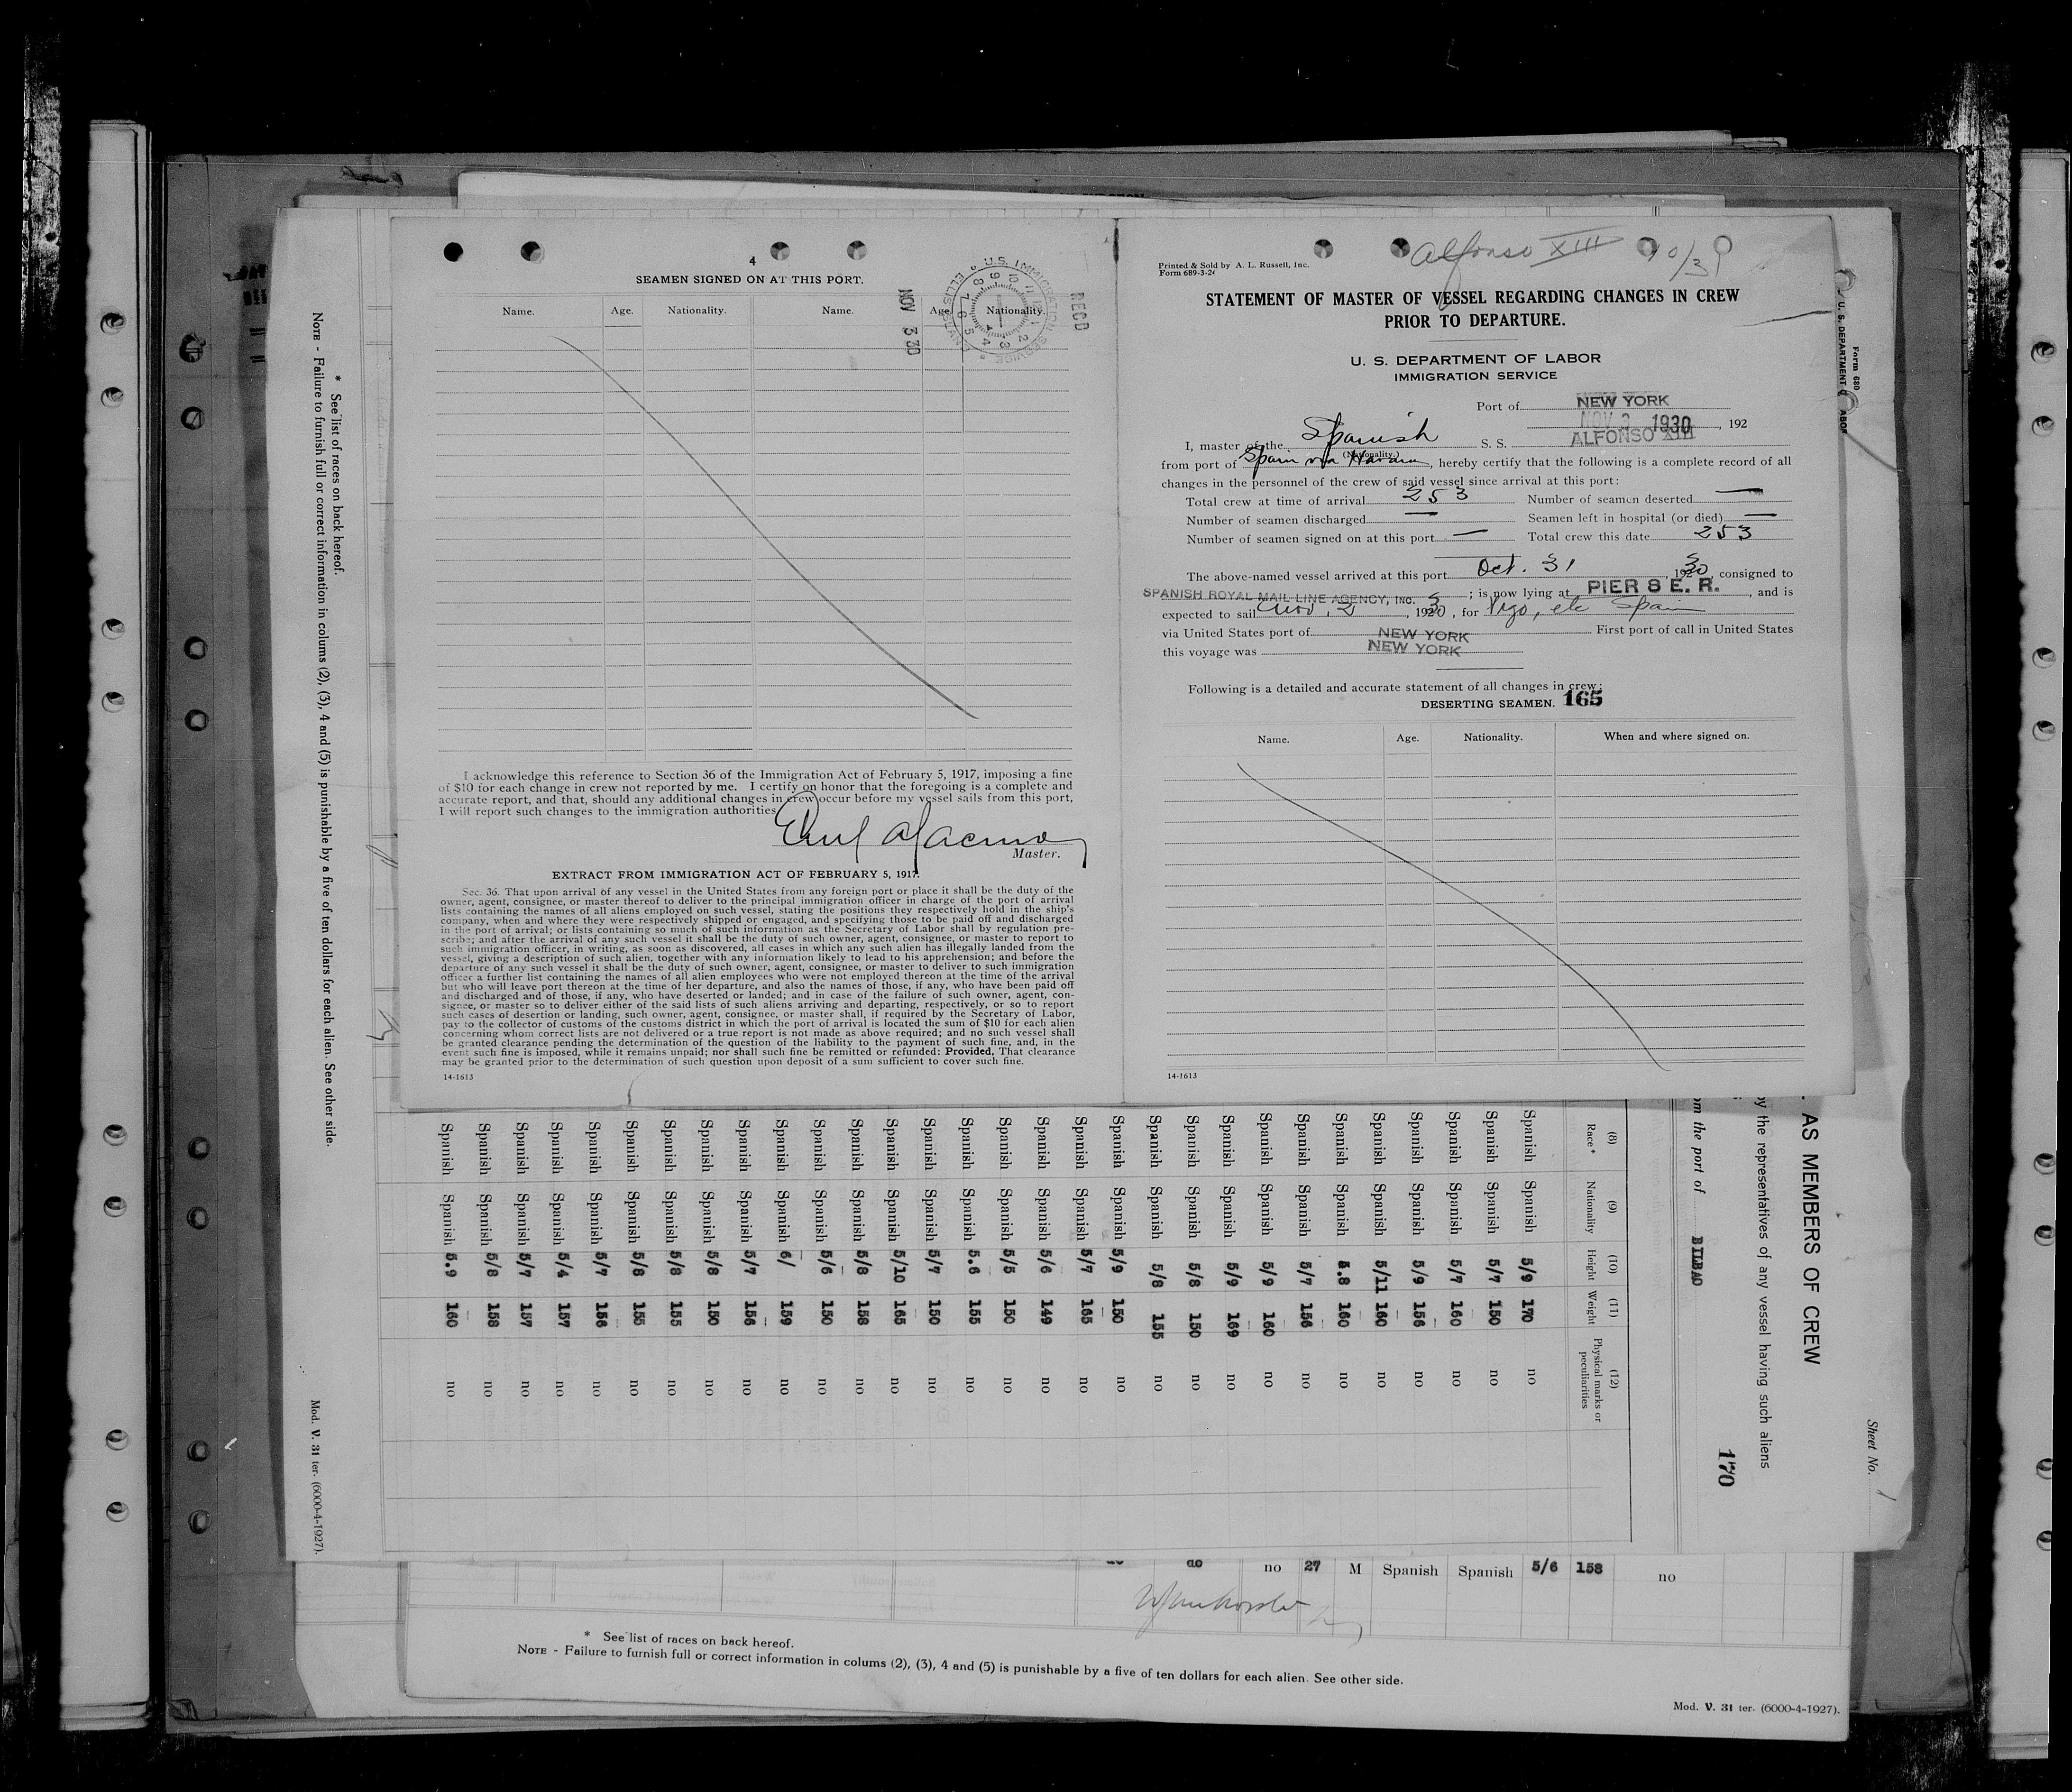 4
SEAMEN SIGNED ON AT THIS PORT.
Name. Age. Nationality. Name. Age. Nationality.
U.S. IMMIGRATION SERVICE ELLIS ISLAND
NOV 3 30
RECD
I acknowledge this reference to Section 36 of the Immigration Act of February 5, 1917, imposing a fine
of $10 for each change in crew not reported by me. I certify on honor that the foregoing is a complete and
accurate report, and that, should any additional changes in crew occur before my vessel sails from this port,
I will report such changes to the immigration authorities.
Master.
EXTRACT FROM IMMIGRATION ACT OF FEBRUARY 5, 1917.
Sec. 36. That upon arrival of any vessel in the United States from any foreign port or place it shall be the duty of the
owner, agent, consignee, or master thereof to deliver to the principal immigration officer in charge of the port of arrival
lists containing the names of all aliens employed on such vessel, stating the positions they respectively hold in the ship's
company, when and where they were respectively shipped or engaged, and specifying those to be paid off and discharged
in the port of arrival; or lists containing so much of such information as the Secretary of Labor shall by regulation pre-
scribe; and after the arrival of any such vessel it shall be the duty of such owner, agent, consignee, or master to report to
such immigration officer, in writing, as soon as discovered, all cases in which any such alien has illegally landed from the
vessel, giving a description of such alien, together with any information likely to lead to his apprehension; and before the
departure of any such vessel it shall be the duty of such owner, agent, consignee, or master to deliver to such immigration
officer a further list containing the names of all alien employees who were not employed thereon at the time of the arrival
but who will leave port thereon at the time of her departure, and also the names of those, if any, who have been paid off
and discharged and of those, if any, who have deserted or landed; and in case of the failure of such owner, agent, con-
signee, or master so to deliver either of the said lists of such aliens arriving and departing, respectively, or so to report
such cases of desertion or landing, such owner, agent, consignee, or master shall, if required by the Secretary of Labor,
pay to the collector of customs of the customs district in which the port of arrival is located the sum of $10 for each alien
concerning whom correct lists are not delivered or a true report is not made as above required; and no such vessel shall
be granted clearance pending the determination of the question of the liability to the payment of such fine, and, in the
event such fine is imposed, while it remains unpaid; nor shall such fine be remitted or refunded: Provided, That clearance
may be granted prior to the determination of such question upon deposit of a sum sufficient to cover such fine.
14-1613
Alfonso XIII 10/31
Printed & Sold by A. L. Russell, Inc.
Form 689-3-24
STATEMENT OF MASTER OF VESSEL REGARDING CHANGES IN CREW
PRIOR TO DEPARTURE.
U. S. DEPARTMENT OF LABOR
IMMIGRATION SERVICE
Port of NEW YORK
NOV 3 1930, 192
I, master of the Spanish S. S. ALFONSO XIII
(Nationality.)
from port of Spain via Havana, hereby certify that the following is a complete record of all
changes in the personnel of the crew of said vessel since arrival at this port:
Total crew at time of arrival 253 Number of seamen deserted —
Number of seamen discharged — Seamen left in hospital (or died) —
Number of seamen signed on at this port — Total crew this date 253
The above-named vessel arrived at this port Oct. 31, 1930, consigned to
SPANISH ROYAL MAIL LINE AGENCY, INC. ; is now lying at PIER 8 E. R., and is
expected to sail Nov. 3, 1930, for Vigo, etc Spain
via United States port of NEW YORK First port of call in United States
this voyage was NEW YORK
Following is a detailed and accurate statement of all changes in crew:
DESERTING SEAMEN. 165
Name. Age. Nationality. When and where signed on.
14-1613
Form 680
U. S. DEPARTMENT LABOR
Sheet No. 1
AS MEMBERS OF CREW
by the representatives of any vessel having such aliens
om the port of BILBAO
170
(8) Race* (9) Nationality (10) Height (11) Weight (12) Physical marks or peculiarities
Spanish Spanish 5/9 170 no
Spanish Spanish 5/7 150 no
Spanish Spanish 5/7 160 no
Spanish Spanish 5/9 156 no
Spanish Spanish 5/11 160 no
Spanish Spanish 5.8 160 no
Spanish Spanish 5/7 156 no
Spanish Spanish 5/9 160 no
Spanish Spanish 5/9 169 no
Spanish Spanish 5/8 150 no
Spanish Spanish 5/8 155 no
Spanish Spanish 5/9 150 no
Spanish Spanish 5/7 165 no
Spanish Spanish 5/6 149 no
Spanish Spanish 5/5 150 no
Spanish Spanish 5.6 155 no
Spanish Spanish 5/7 150 no
Spanish Spanish 5/10 165 no
Spanish Spanish 5/8 158 no
Spanish Spanish 5/6 150 no
Spanish Spanish 6/ 159 no
Spanish Spanish 5/7 156 no
Spanish Spanish 5/8 150 no
Spanish Spanish 5/8 155 no
Spanish Spanish 5/8 155 no
Spanish Spanish 5/7 156 no
Spanish Spanish 5/4 157 no
Spanish Spanish 5/7 157 no
Spanish Spanish 5/8 158 no
Spanish Spanish 5.9 160 no
* See list of races on back hereof.
NOTE - Failure to furnish full or correct information in colums (2), (3), 4 and (5) is punishable by a five of ten dollars for each alien. See other side.
Mod. V. 31 ter. (6000-4-1927).
do no 27 M Spanish Spanish 5/6 158 no
* See list of races on back hereof.
NOTE - Failure to furnish full or correct information in colums (2), (3), 4 and (5) is punishable by a five of ten dollars for each alien. See other side.
Mod. V. 31 ter. (6000-4-1927).